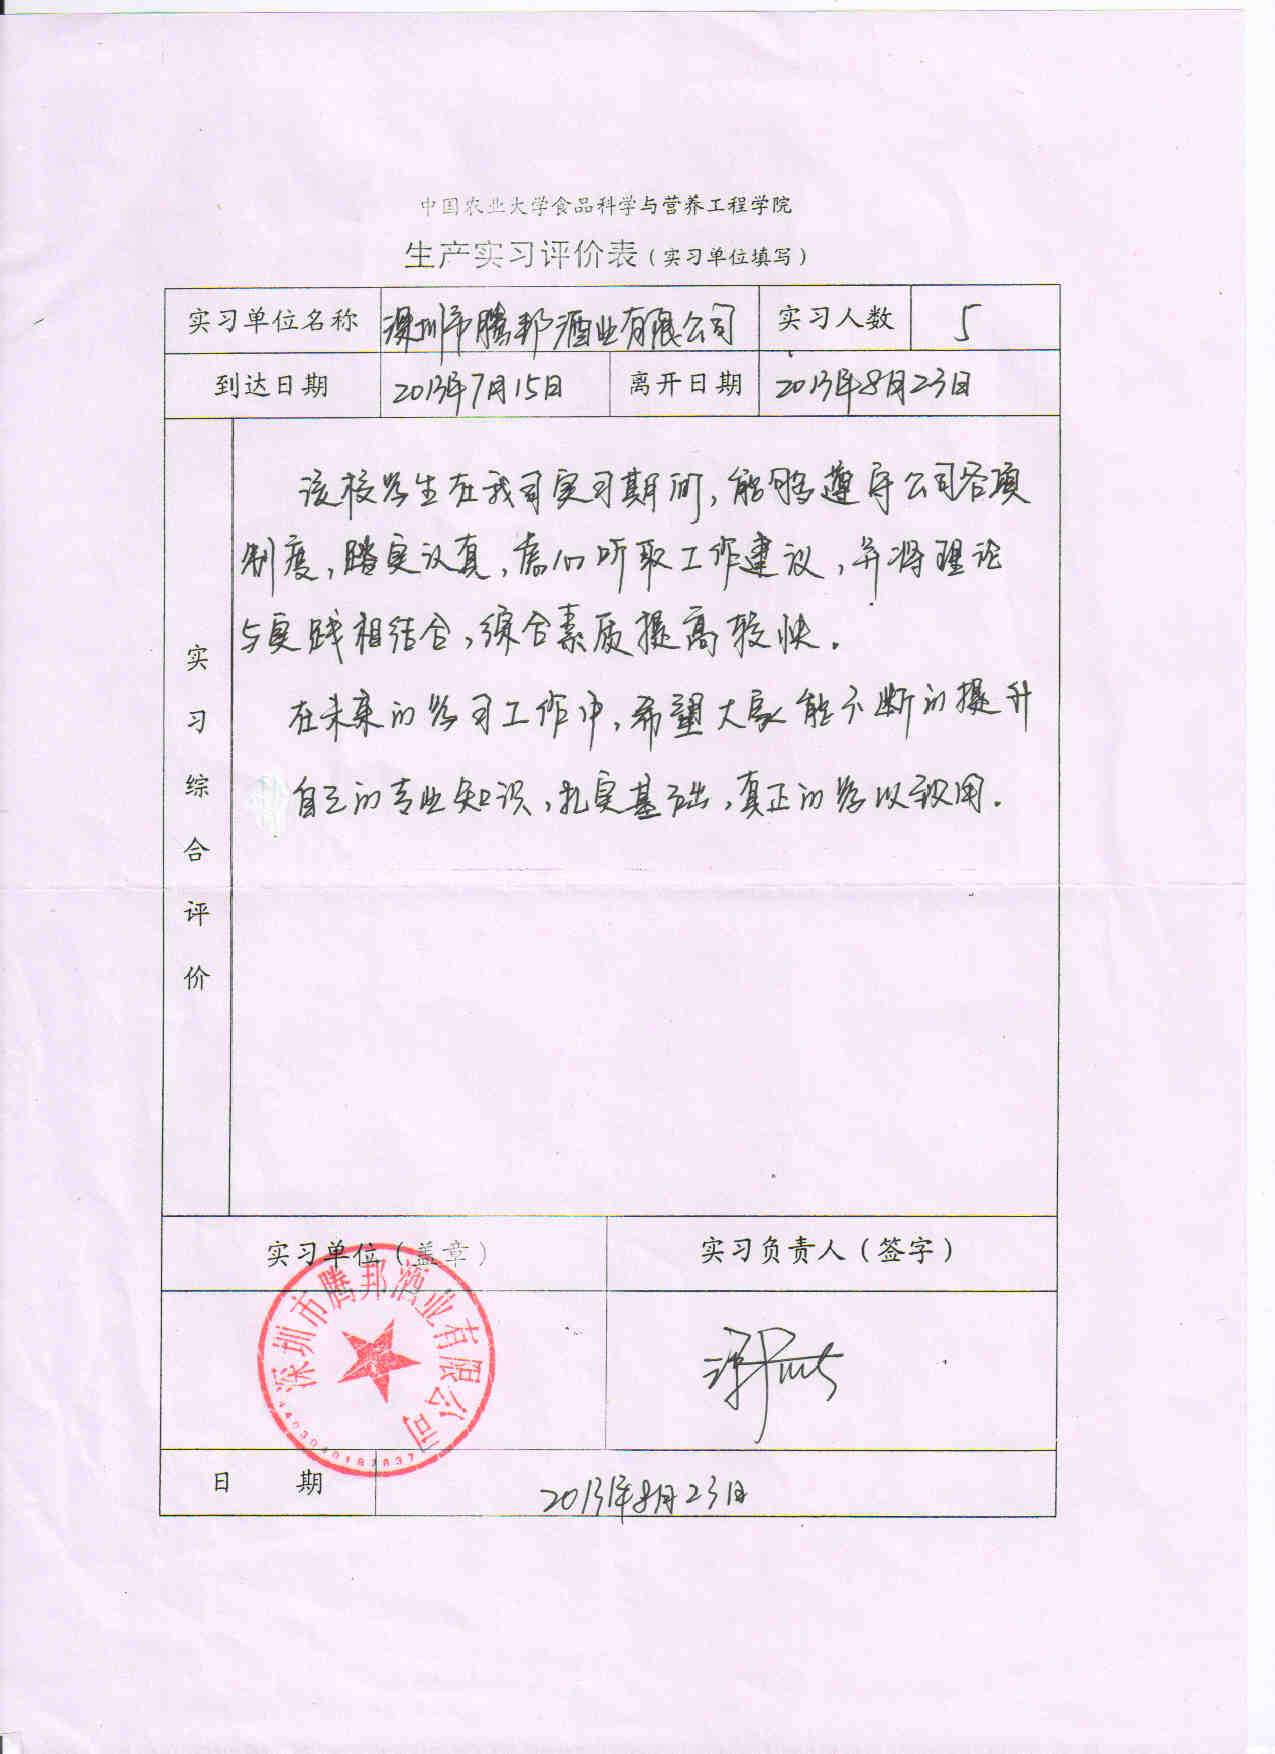 中国农业大学食品科学与营养工程学院
生产实习评价表（实习单位填写）
实习单位名称 深圳市腾邦酒业有限公司 实习人数 5
到达日期 2013年7月15日 离开日期 2013年8月23日
实习综合评价
该校学生在我司实习期间，能够遵守公司各项
制度，踏实认真，虚心听取工作建议，并将理论
与实践相结合，综合素质提高较快。
在未来的学习工作中，希望大家能不断的提升
自己的专业知识，扎实基础，真正的学以致用。
实习单位（盖章） 实习负责人（签字）
深圳市腾邦酒业有限公司
日 期 2013年8月23日